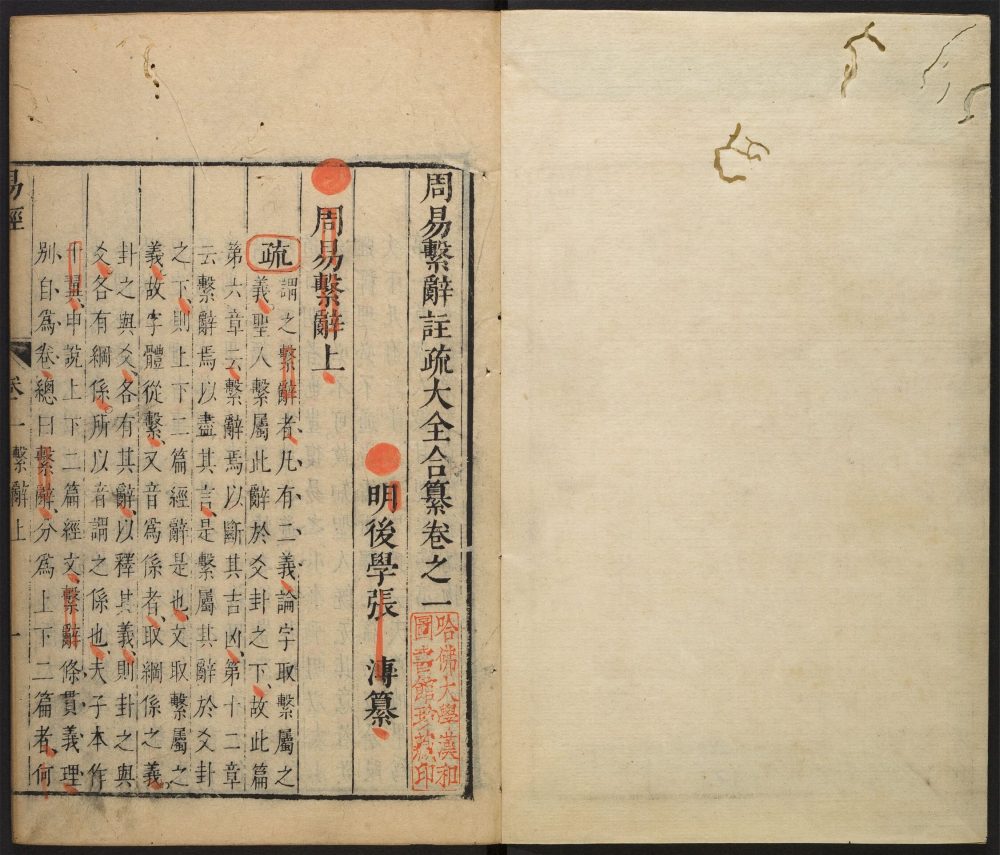 周易繫辭註疏大全合纂卷之一
哈佛大學漢和
圖書館珍藏印
明後學張 溥纂
周易繫辭上
疏
謂之繫辭者凡有二義論字取繫屬之
義聖人繫屬此辭於爻卦之下故此篇
第六章云繫辭焉以斷其吉凶第十二章
云繫辭焉以盡其言是繫屬其辭於爻卦
之下則上下二篇經辭是也文取繫屬之
義故字體從繫又音爲係者取綱係之義
卦之與爻各有其辭以釋其義則卦之與
爻各有綱係所以音謂之係也夫子本作
十翼申說上下二篇經文繫辭條貫義理
別自爲卷總曰繫辭分爲上下二篇者何
易經
卷一 繫辭上
一